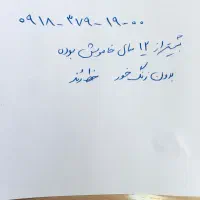 ۰۹۱۸-۳۷۹-۱۹-۰۰
بیش از ۱۲ سال خاموش بوده
بدون زنگ خور خط رند